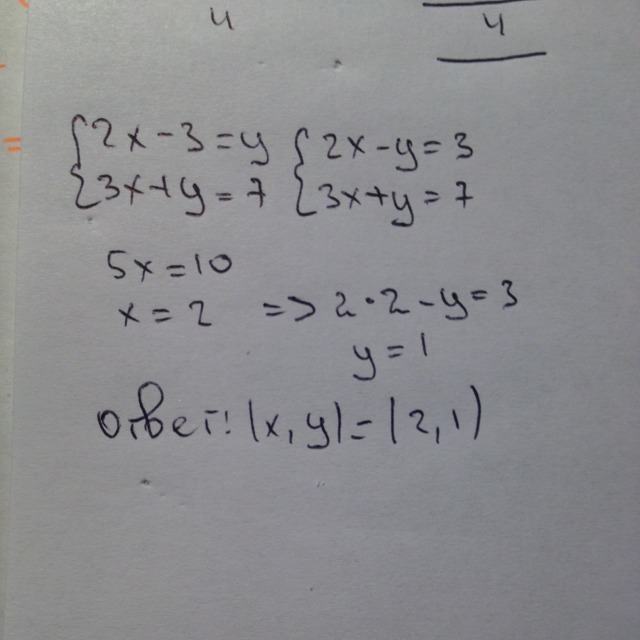 4 4
{2x-3=y {2x-y=3
{3x+y=7 {3x+y=7
5x=10
x=2 => 2·2-y=3
y=1
ответ: (x,y)=(2,1)